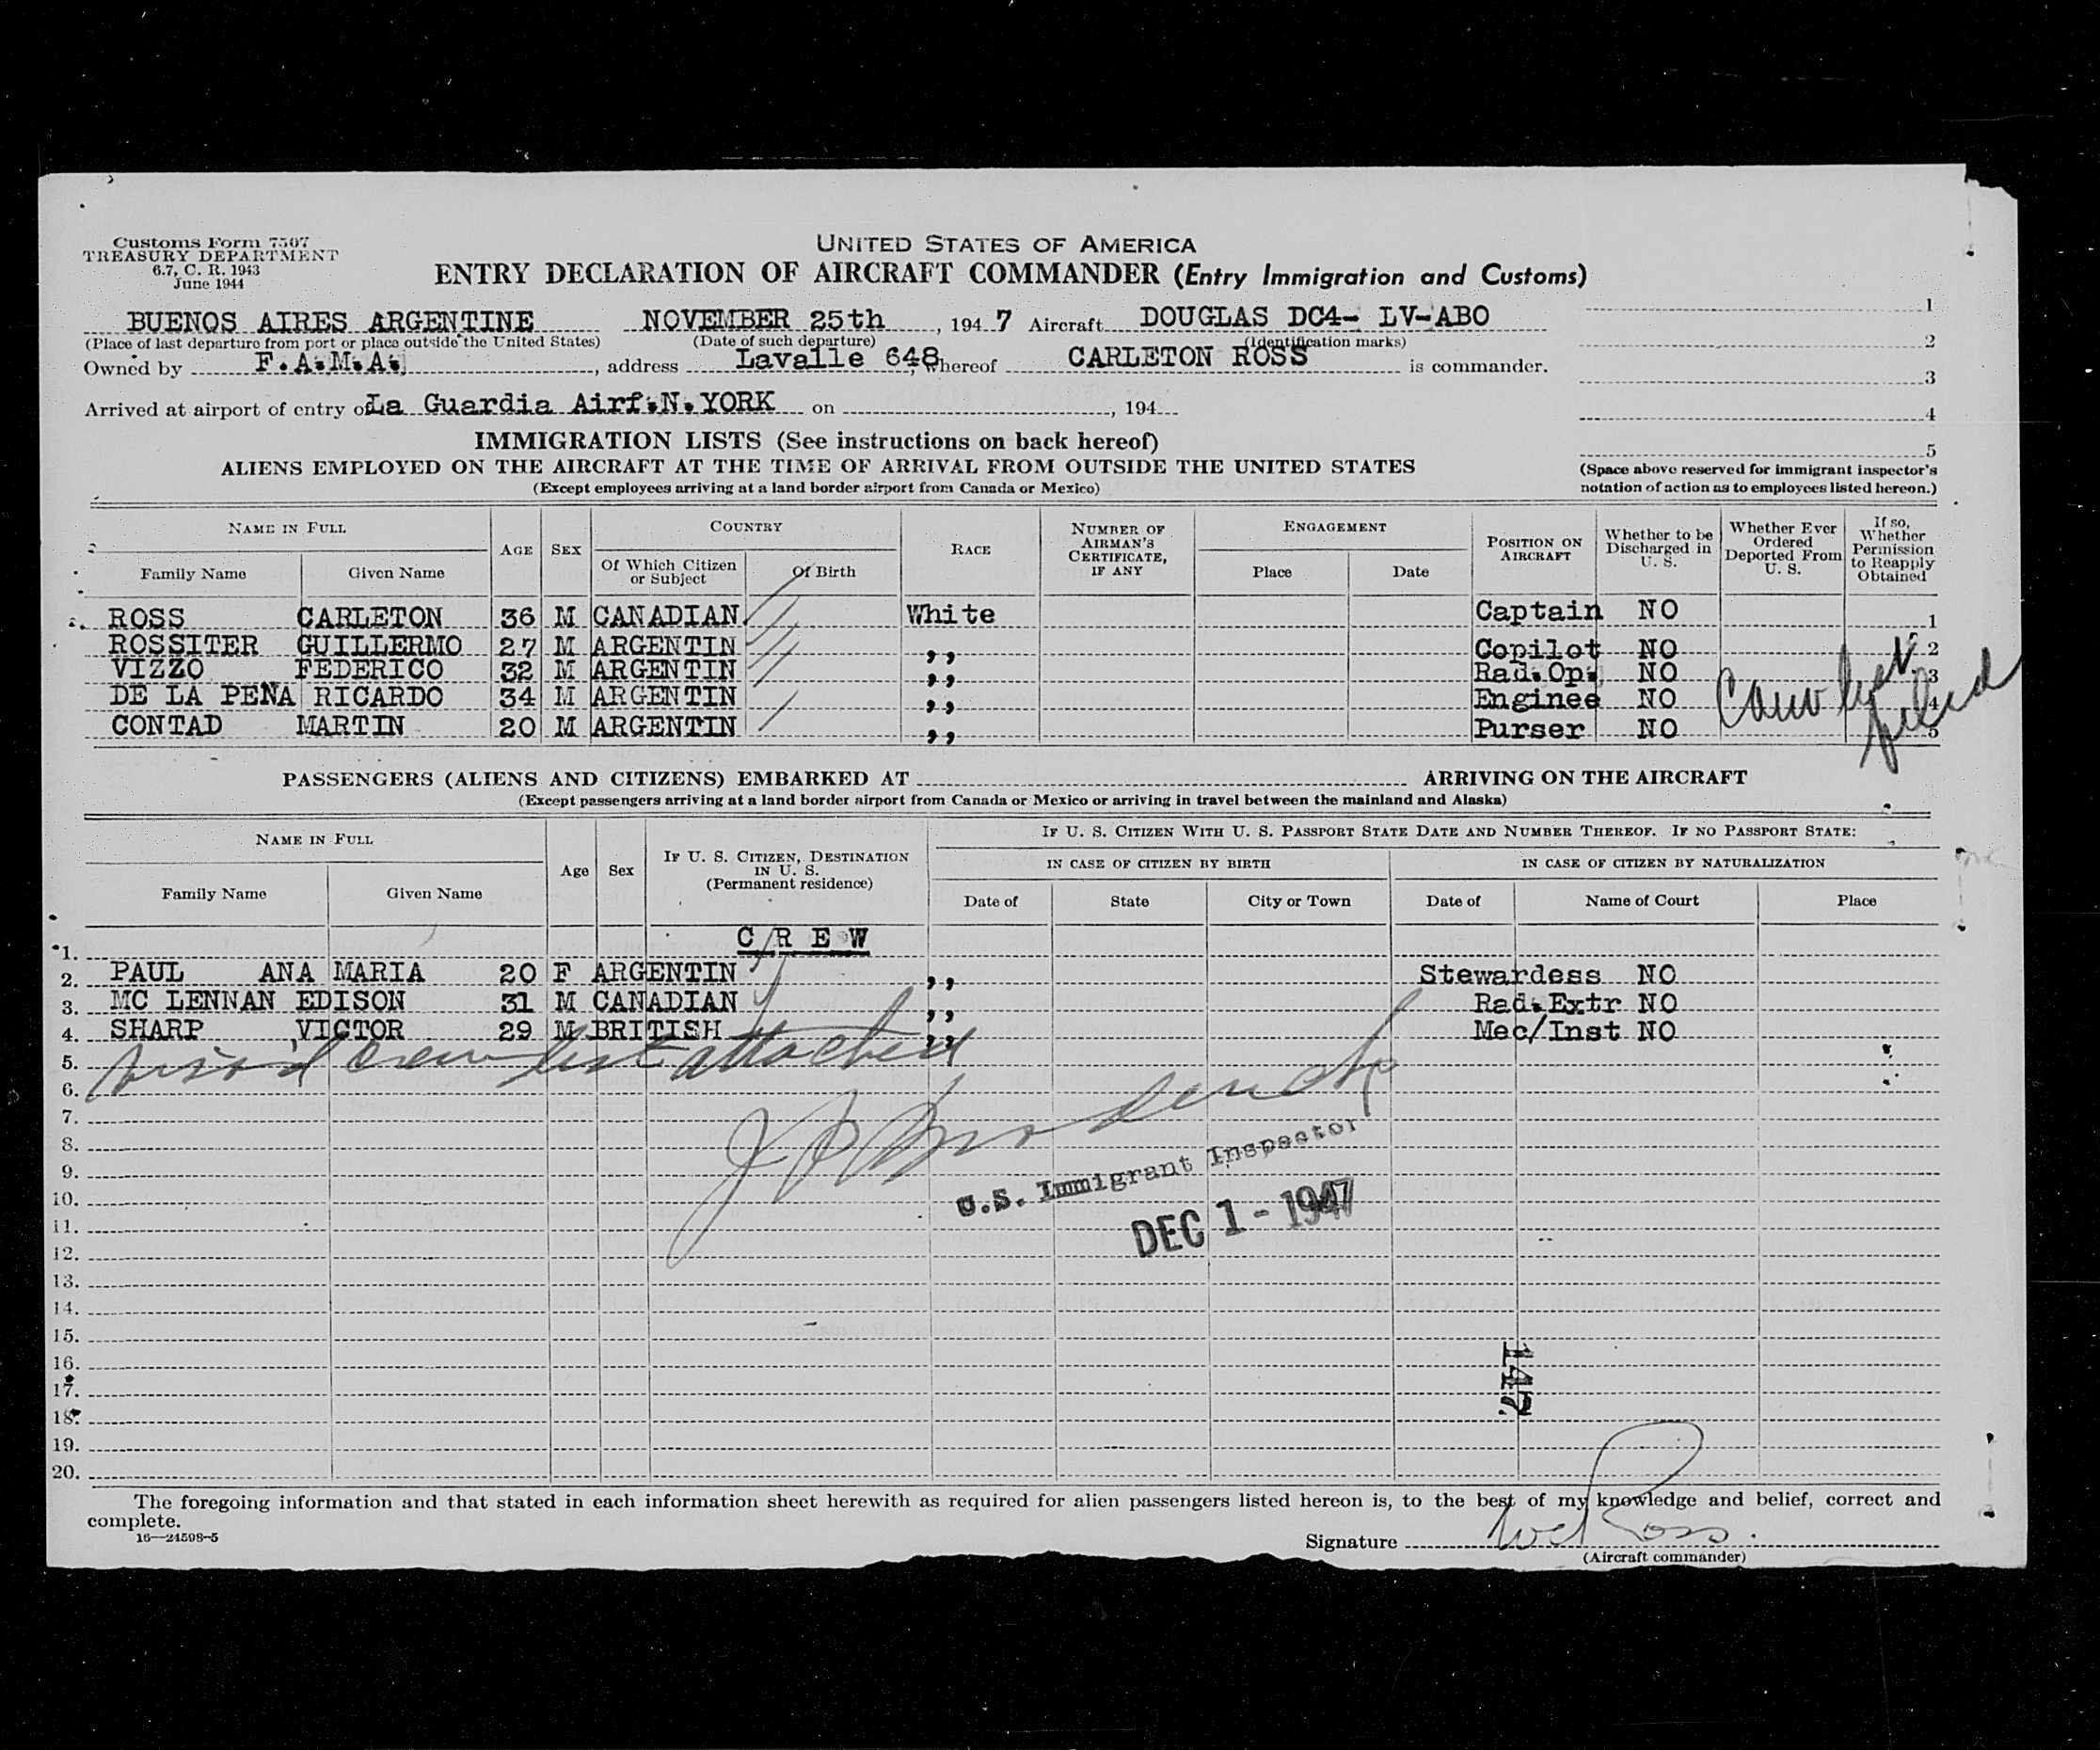 Customs Form 7507
TREASURY DEPARTMENT
6.7, C. R. 1943
June 1944
UNITED STATES OF AMERICA
ENTRY DECLARATION OF AIRCRAFT COMMANDER (Entry Immigration and Customs)
BUENOS AIRES ARGENTINE NOVEMBER 25th, 1947 Aircraft DOUGLAS DC4- LV-ABO 1
(Place of last departure from port or place outside the United States) (Date of such departure) (Identification marks) 2
Owned by F.A.M.A., address Lavalle 648, whereof CARLETON ROSS is commander.
3
Arrived at airport of entry of La Guardia Airf.N.YORK on , 194 4
IMMIGRATION LISTS (See instructions on back hereof) 5
ALIENS EMPLOYED ON THE AIRCRAFT AT THE TIME OF ARRIVAL FROM OUTSIDE THE UNITED STATES
(Except employees arriving at a land border airport from Canada or Mexico)
(Space above reserved for immigrant inspector's
notation of action as to employees listed hereon.)
NAME IN FULL
Family Name Given Name
AGE SEX
COUNTRY
Of Which Citizen or Subject Of Birth
RACE
NUMBER OF AIRMAN'S CERTIFICATE, IF ANY
ENGAGEMENT
Place Date
POSITION ON AIRCRAFT
Whether to be Discharged in U. S.
Whether Ever Ordered Deported From U. S.
If so, Whether Permission to Reapply Obtained
ROSS CARLETON 36 M CANADIAN White Captain NO 1
ROSSITER GUILLERMO 27 M ARGENTIN ,, Copilot NO 2
VIZZO FEDERICO 32 M ARGENTIN ,, Rad.Op. NO 3
DE LA PENA RICARDO 34 M ARGENTIN ,, Enginee NO 4
CONTAD MARTIN 20 M ARGENTIN ,, Purser NO 5
PASSENGERS (ALIENS AND CITIZENS) EMBARKED AT ARRIVING ON THE AIRCRAFT
(Except passengers arriving at a land border airport from Canada or Mexico or arriving in travel between the mainland and Alaska)
NAME IN FULL
Family Name Given Name
Age Sex
IF U. S. CITIZEN, DESTINATION IN U. S.
(Permanent residence)
IF U. S. CITIZEN WITH U. S. PASSPORT STATE DATE AND NUMBER THEREOF. IF NO PASSPORT STATE:
IN CASE OF CITIZEN BY BIRTH IN CASE OF CITIZEN BY NATURALIZATION
Date of State City or Town Date of Name of Court Place
1. C R E W
2. PAUL ANA MARIA 20 F ARGENTIN ,, Stewardess NO
3. MC LENNAN EDISON 31 M CANADIAN ,, Rad.Extr NO
4. SHARP VICTOR 29 M BRITISH ,, Mec/Inst NO
5. visa'd crew list attached
6.
7.
8.
9.
U.S. Immigrant Inspector
10.
DEC 1 - 1947
11.
12.
13.
14.
15.
16.
147.
17.
18.
19.
20.
The foregoing information and that stated in each information sheet herewith as required for alien passengers listed hereon is, to the best of my knowledge and belief, correct and
complete.
16—24598-5
Signature Ross.
(Aircraft commander)